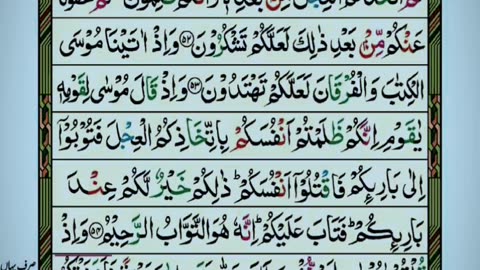 ثُمَّ اتَّخَذْتُمُ الْعِجْلَ مِنْۢ بَعْدِهٖ وَاَنْتُمْ ظٰلِمُوْنَ ثُمَّ عَفَوْنَا
عَنْكُمْ مِّنْۢ بَعْدِ ذٰلِكَ لَعَلَّكُمْ تَشْكُرُوْنَ ۝۵۲ وَاِذْ اٰتَيْنَا مُوْسَى
الْكِتٰبَ وَالْفُرْقَانَ لَعَلَّكُمْ تَهْتَدُوْنَ ۝۵۳ وَاِذْ قَالَ مُوْسٰى لِقَوْمِهٖ
يٰقَوْمِ اِنَّكُمْ ظَلَمْتُمْ اَنْفُسَكُمْ بِاتِّخَاذِكُمُ الْعِجْلَ فَتُوْبُوْٓا
اِلٰى بَارِئِكُمْ فَاقْتُلُوْٓا اَنْفُسَكُمْ ؕ ذٰلِكُمْ خَيْرٌ لَّكُمْ عِنْدَ
بَارِئِكُمْ ؕ فَتَابَ عَلَيْكُمْ ؕ اِنَّهٗ هُوَ التَّوَّابُ الرَّحِيْمُ ۝۵۴ وَاِذْ